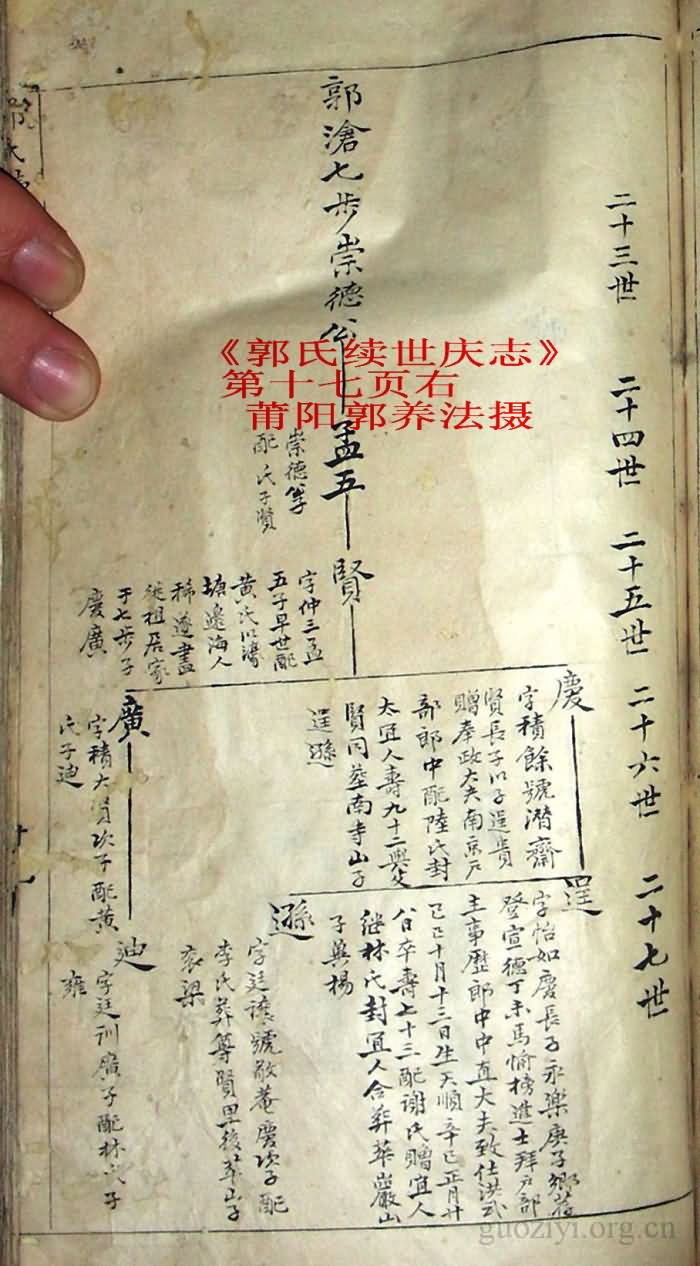 二十三世
二十四世
二十五世
二十六世
二十七世
郭滄七步崇德公
孟五
崇德公子
配 氏子賢
賢
字仲三孟
五子早世配
黄氏以濱
塘邊海人
稀遂盡
徙祖居家
于七步子
慶廣
慶
字積餘號潛齋
賢長子以子逞貴
贈奉政大夫南京戶
部郎中配陸氏封
太宜人壽九十二與父
賢同葬南寺山子
逞遜
廣
字積大賢次子配黄
氏子迪
逞
字怡如慶長子永樂庚子鄉薦
登宣德丁未馬愉榜進士拜戶部
主事歷郎中中直大夫致仕洪武
己巳十月十三日生天順辛巳正月廿
八日卒壽七十三配謝氏贈宜人
继林氏封宜人合葬華巖山
子巽楊
遜
字廷謙號敬菴慶次子配
李氏葬尊賢里後華山子
衮梁
迪
字廷训廣子配林氏子
雍
《郭氏续世庆志》
第十七页右
莆阳郭养法摄
guoziyi.org.cn